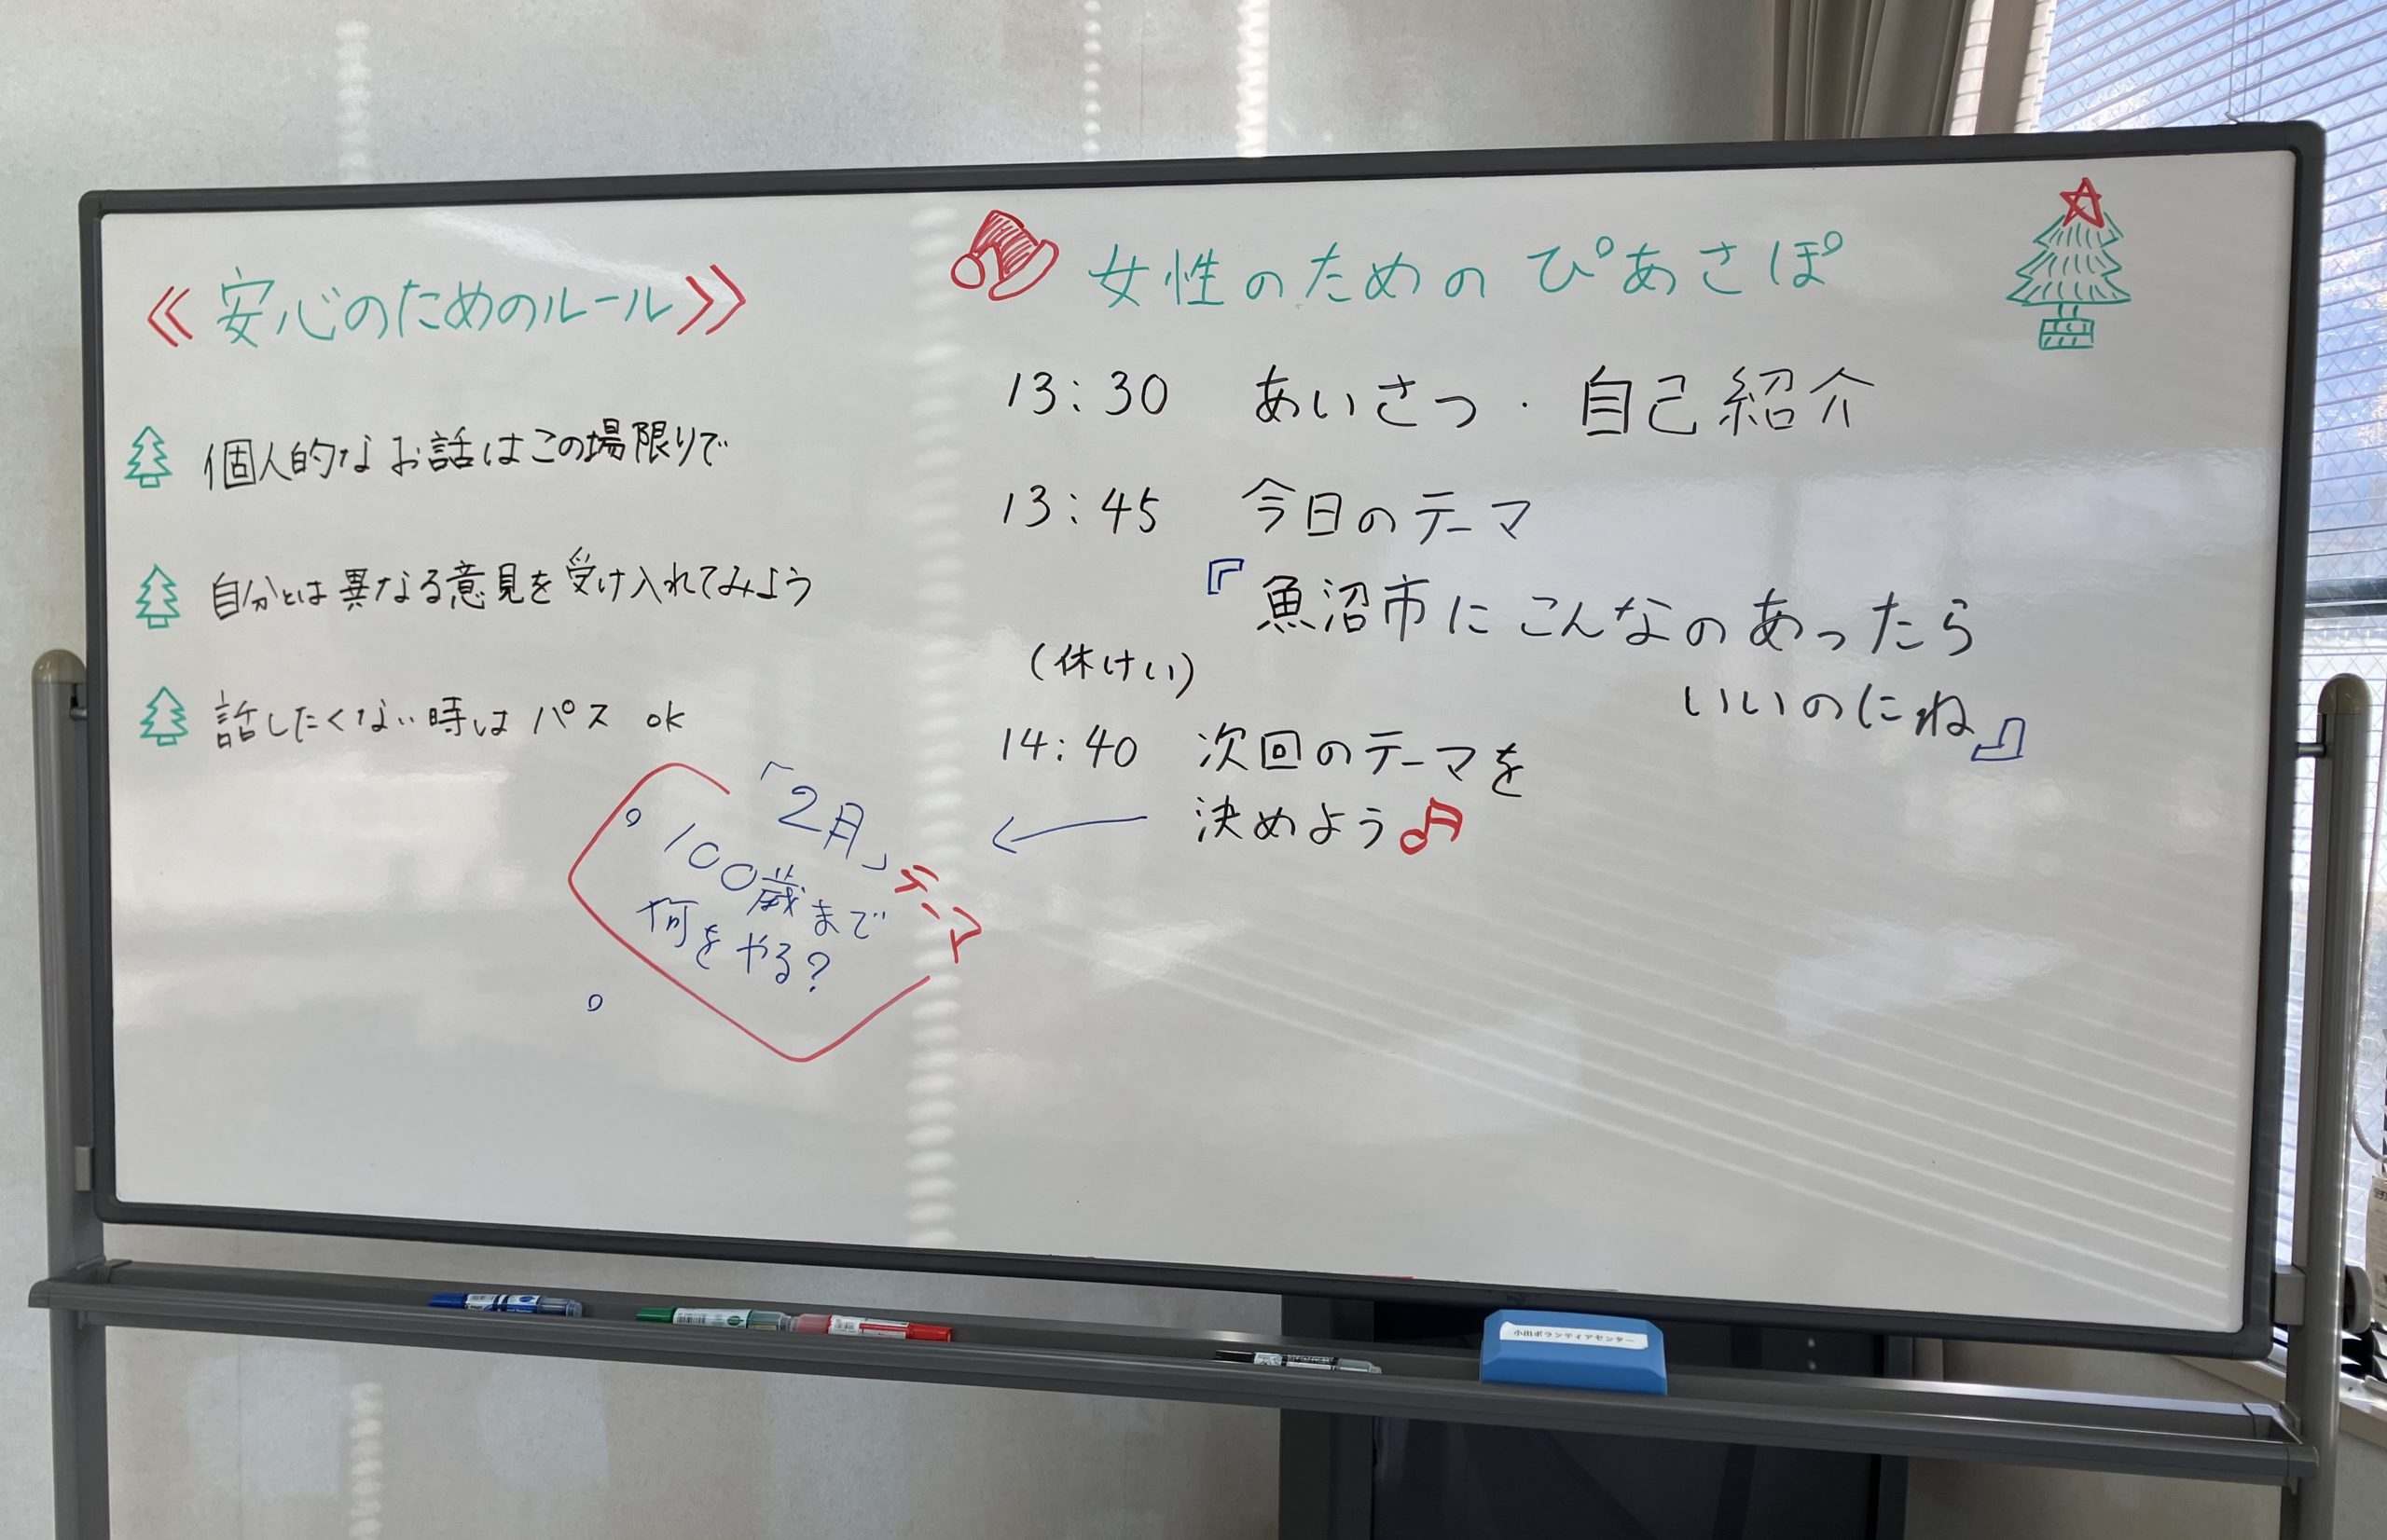 ≪安心のためのルール≫
個人的なお話はこの場限りで
自分とは異なる意見を受け入れてみよう
話したくない時はパス ok
女性のためのぴあさぽ
13:30 あいさつ・自己紹介
13:45 今日のテーマ
『魚沼市にこんなのあったら
いいのにね』
(休けい)
14:40 次回のテーマを
決めよう♬
←
「2月」テーマ
。100歳まで
何をやる?
。
小出ボランティアセンター